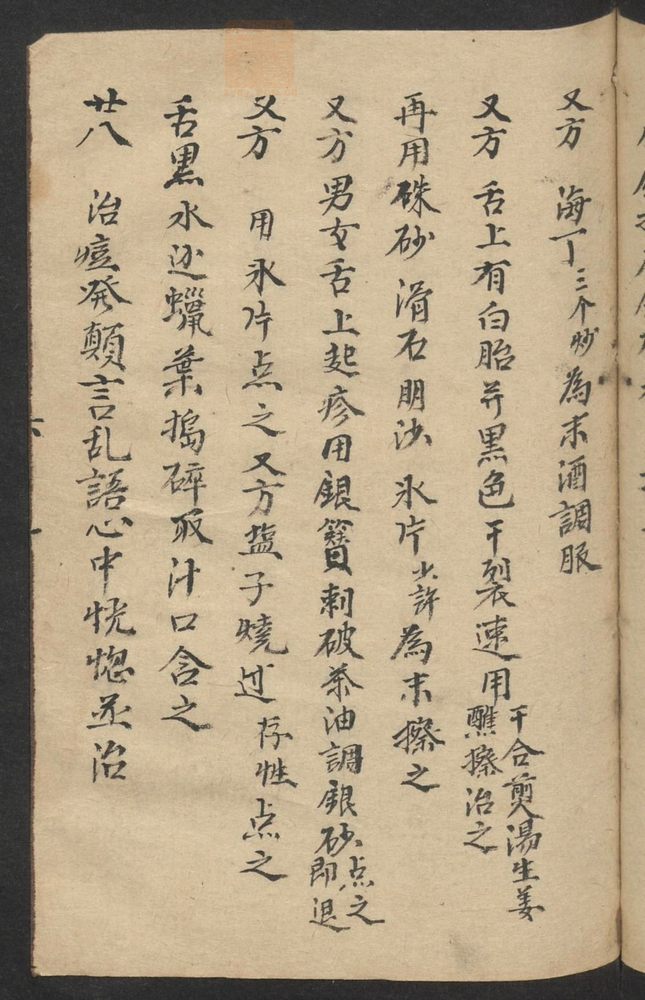 又方 海丁三个炒為末酒調服
又方 舌上有白胎并黑色干裂速用干合煎湯生姜蘸搽治之
再用硃砂 滑石明沙 氷片少許為末搽之
又方男女舌上起疹用銀簪刺破茶油調銀砂点之即退
又方 用氷片点之又方塩子燒过存性点之
舌黑水边蠟葉搗碎取汁口含之
廿八 治痘発顛言乱語心中恍惚並治